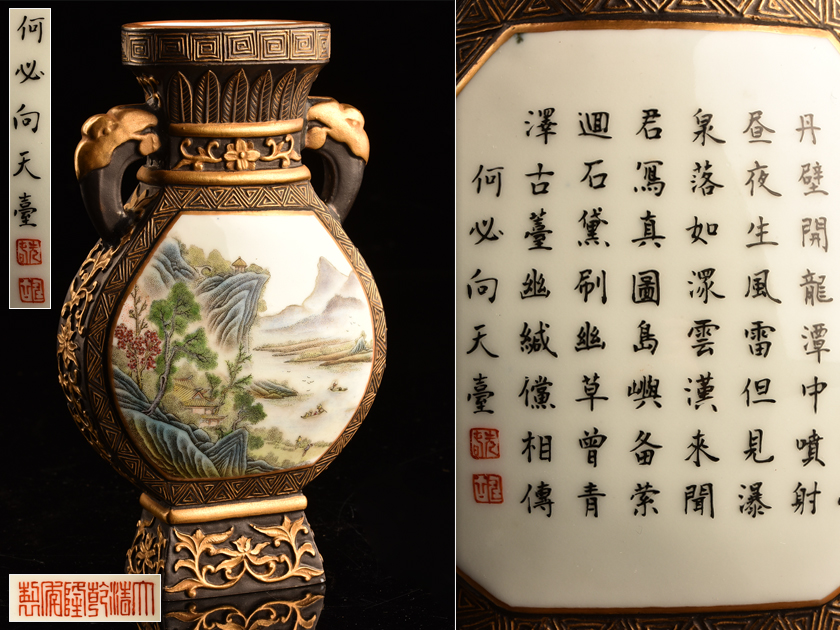 何必向天臺
大清乾隆年製
丹壁開龍潭中噴射
昼夜生風雷但見瀑
泉落如潀雲漢來聞
君冩真圖島嶼备萦
迴石黛刷幽草曾青
澤古薹幽緘儻相傳
何必向天臺